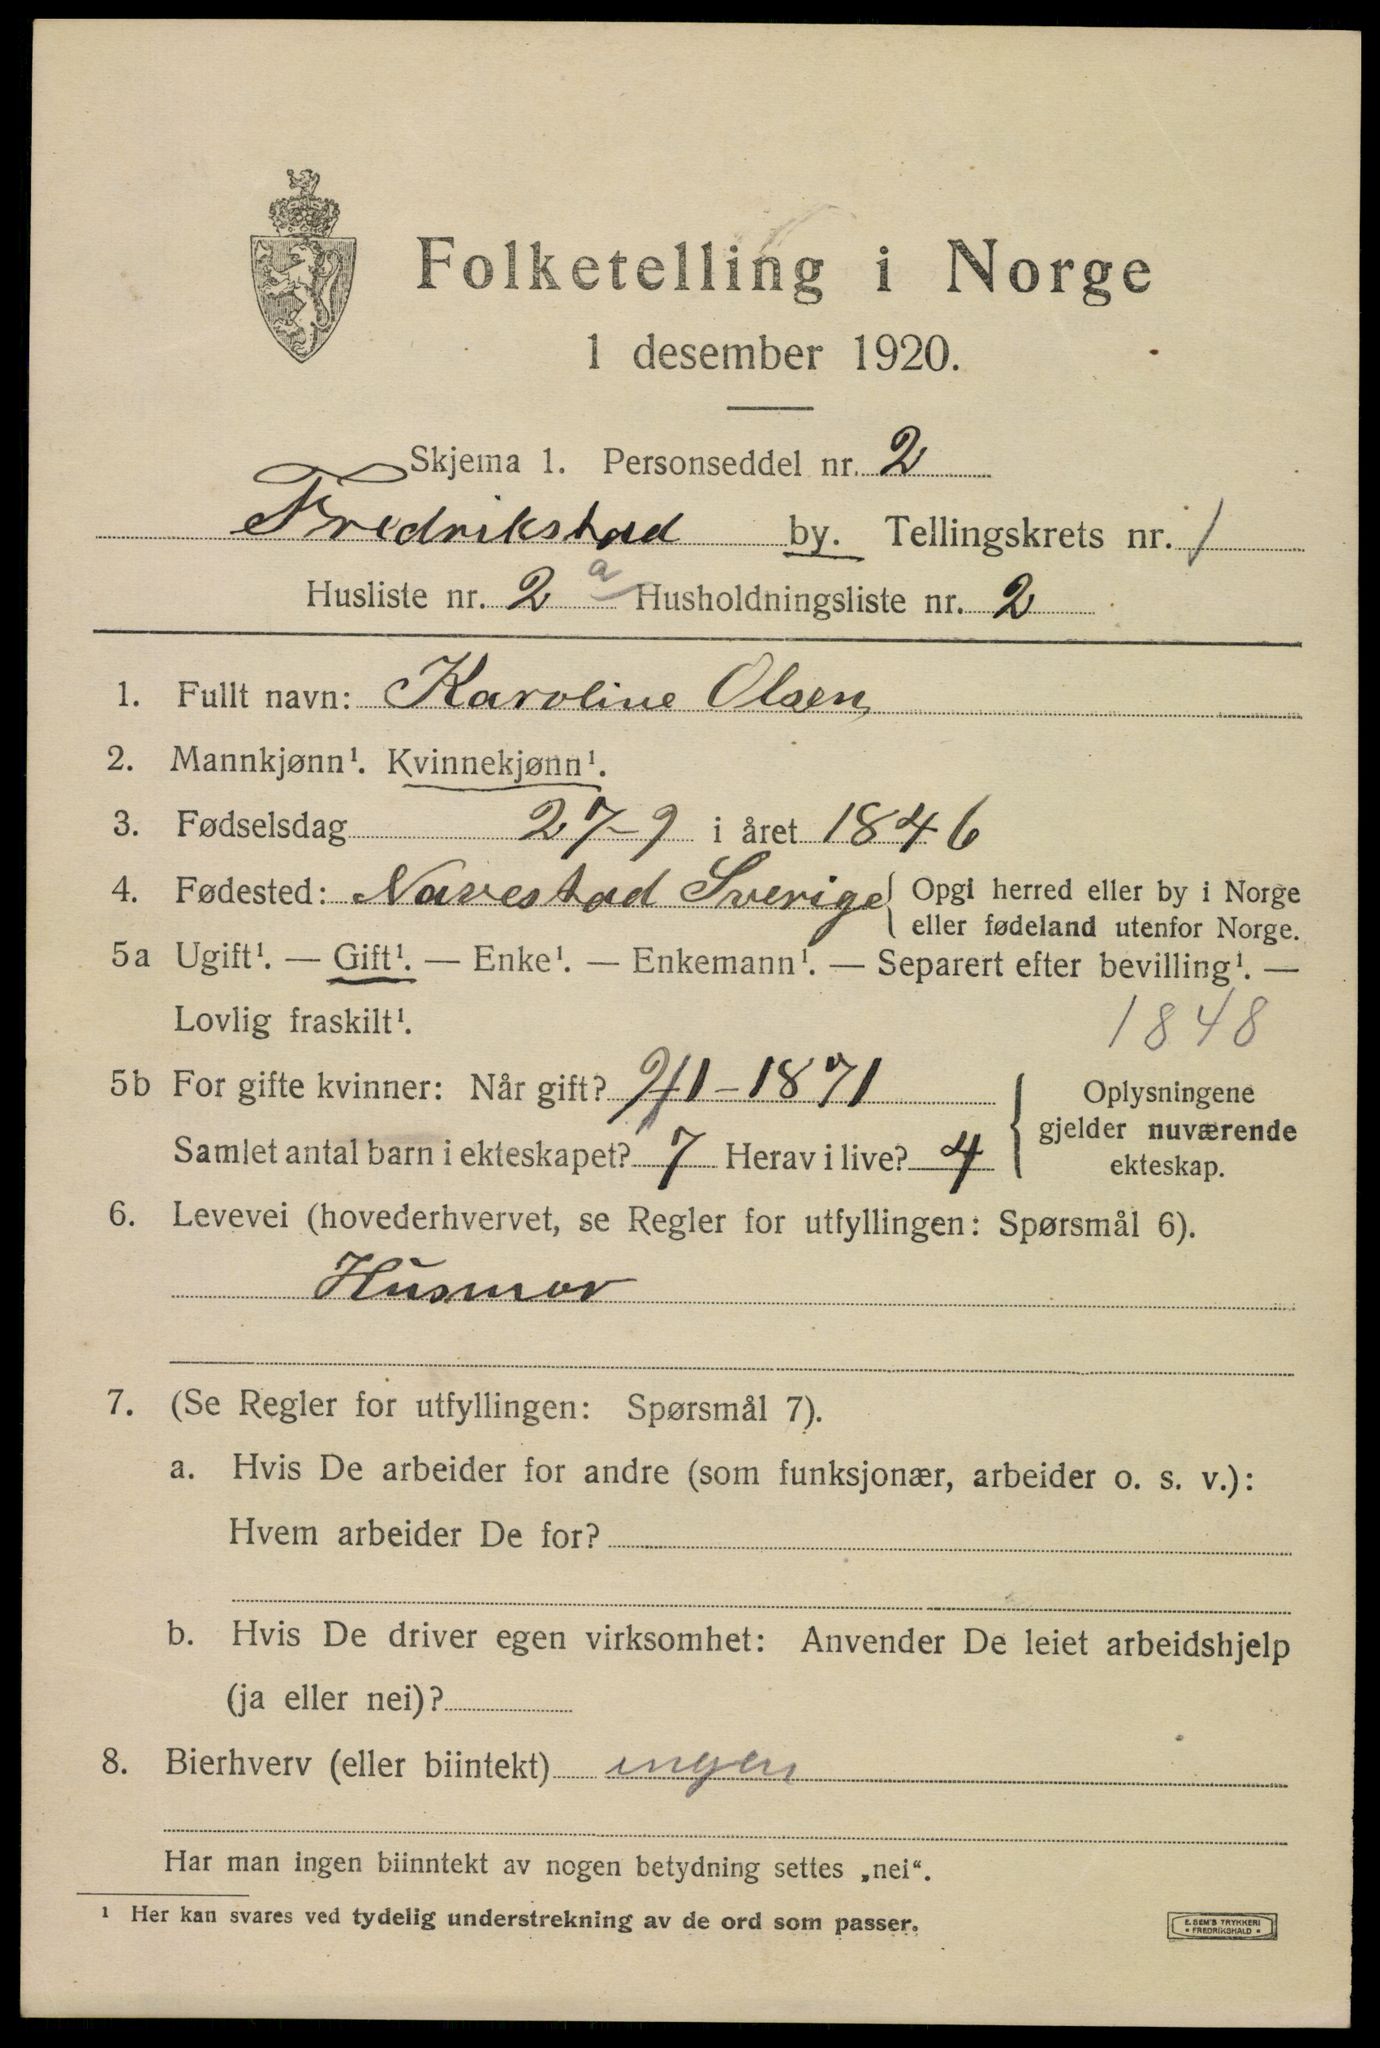 Folketelling i Norge
1 desember 1920.
Skjema 1. Personseddel nr. 2
Fredrikstad by. Tellingskrets nr. 1
Husliste nr. 2 a Husholdningsliste nr. 2
1. Fullt navn: Karoline Olsen
2. Mannkjønn¹. Kvinnekjønn¹.
3. Fødselsdag 27-9 i året 1846
4. Fødested: Navestad Sverige { Opgi herred eller by i Norge
eller fødeland utenfor Norge.
5a Ugift¹. — Gift¹. — Enke¹. — Enkemann¹. — Separert efter bevilling¹. —
Lovlig fraskilt¹. 1848
5b For gifte kvinner: Når gift? 2/1-1871
Samlet antal barn i ekteskapet? 7 Herav i live? 4
Oplysningene
gjelder nuværende
ekteskap.
6. Levevei (hovederhvervet, se Regler for utfyllingen: Spørsmål 6).
Husmor
7. (Se Regler for utfyllingen: Spørsmål 7).
a. Hvis De arbeider for andre (som funksjonær, arbeider o. s. v.):
Hvem arbeider De for?
b. Hvis De driver egen virksomhet: Anvender De leiet arbeidshjelp
(ja eller nei)?
8. Bierhverv (eller biintekt) ingen
Har man ingen biinntekt av nogen betydning settes „nei“.
¹ Her kan svares ved tydelig understrekning av de ord som passer.
E. SEM'S TRYKKERI
• FREDRIKSHALD •